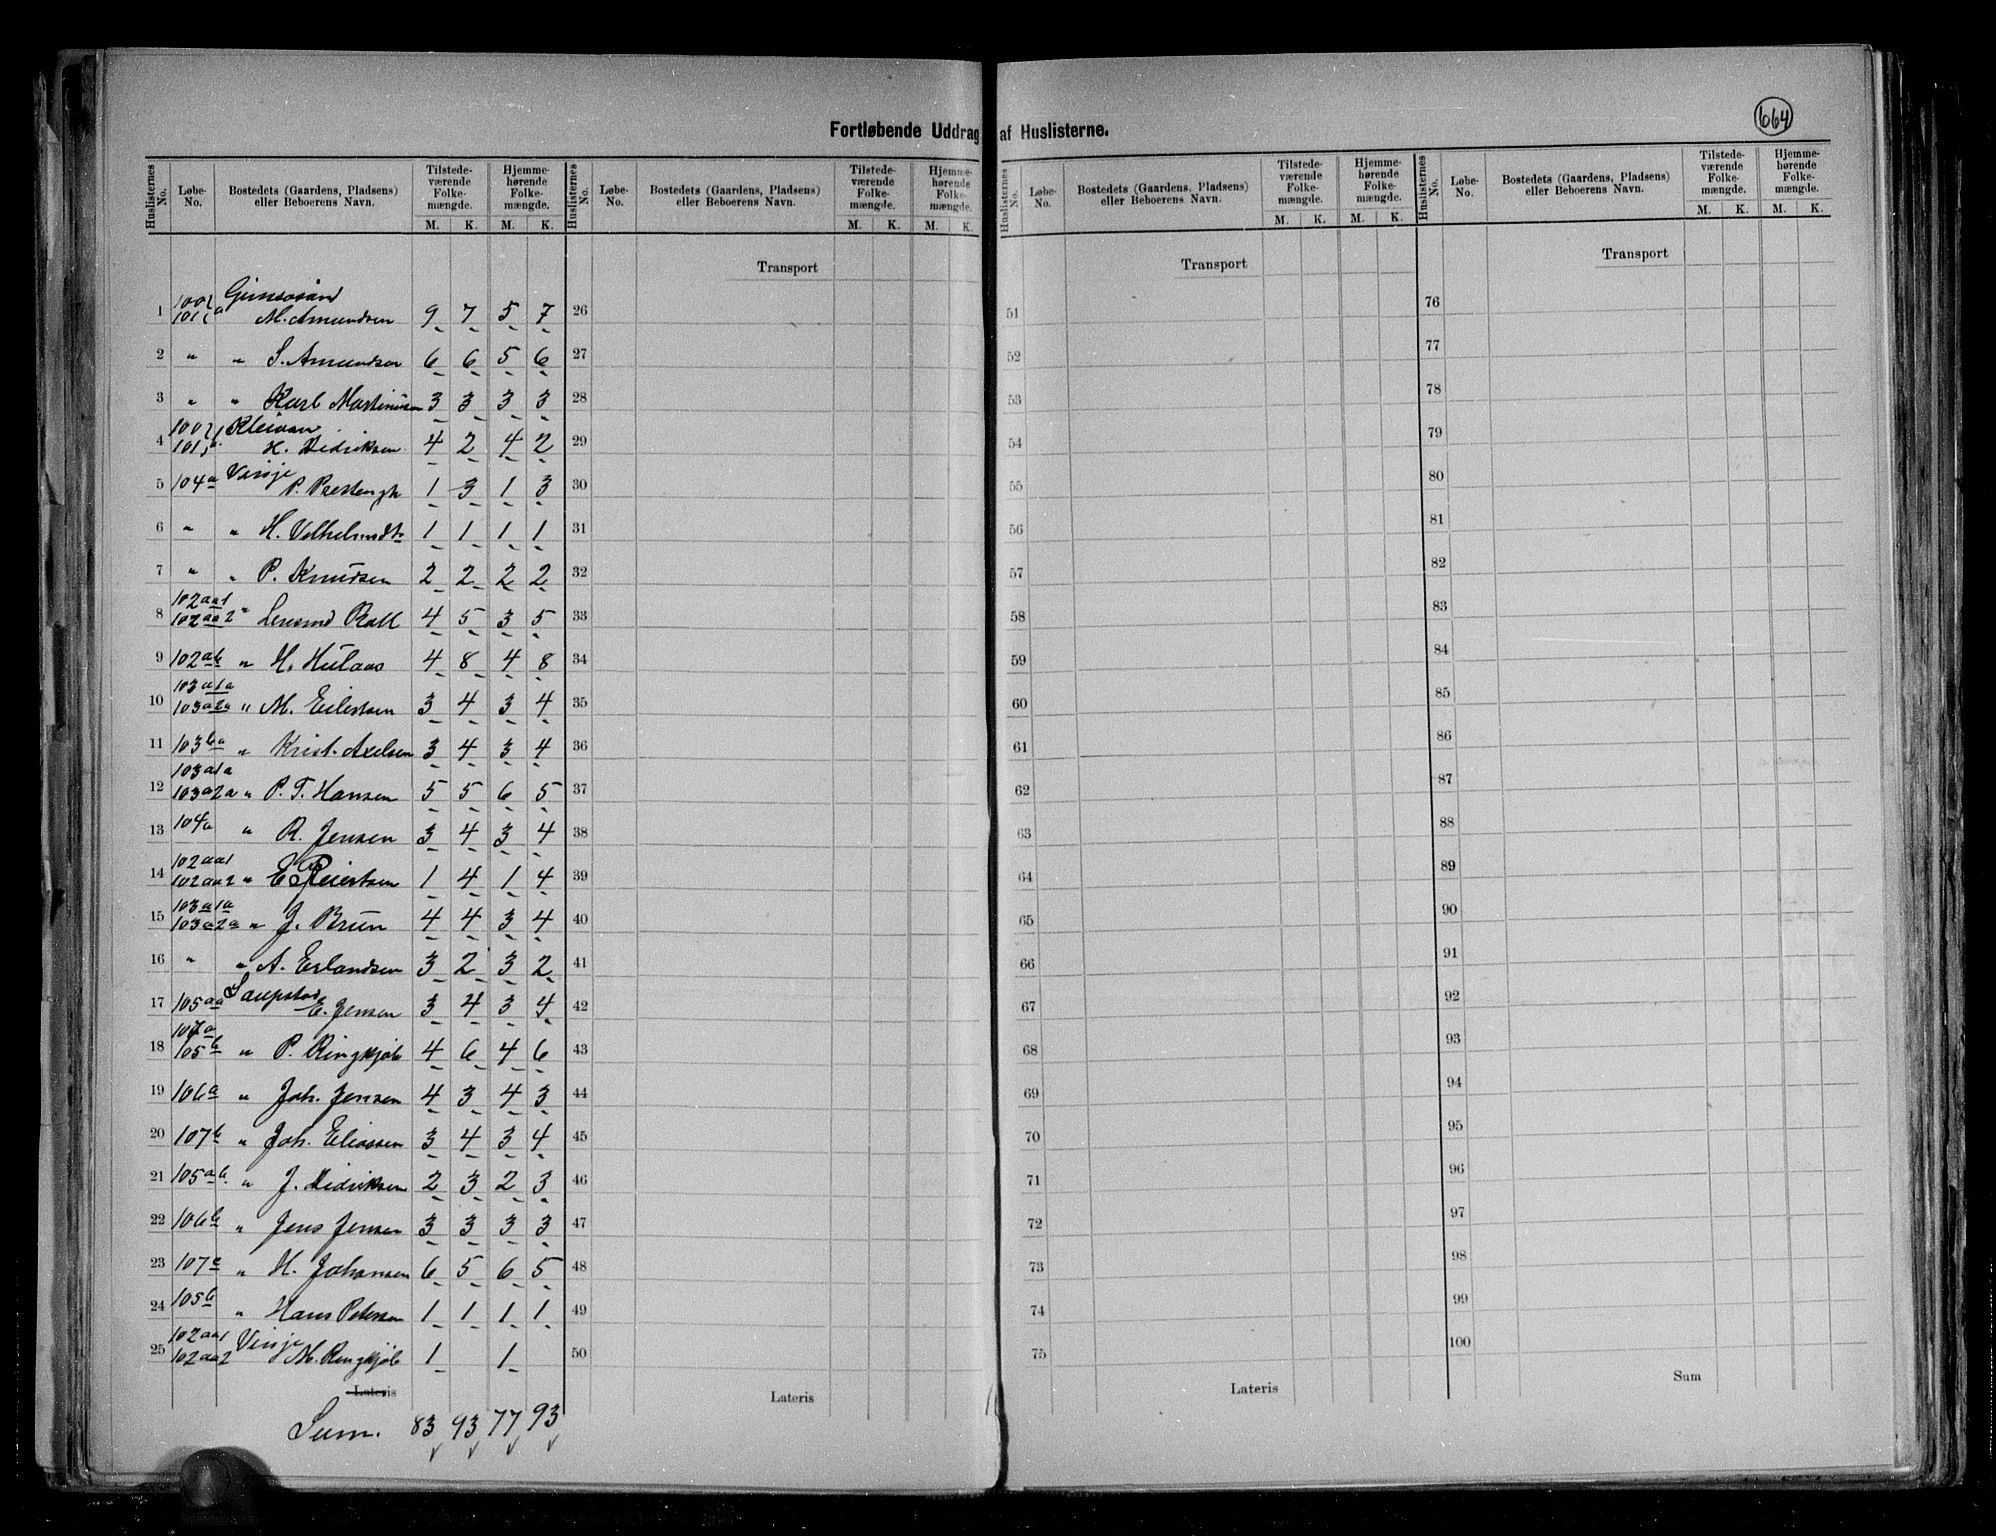 Fortløbende Uddrag af Huslisterne.
664
Huslisternes No. Løbe-No. Bostedets (Gaardens, Pladsens) eller Beboerens Navn. Tilstedeværende Folkemængde. M. K. Hjemmehørende Folkemængde. M. K.
Huslisternes No. Løbe-No. Bostedets (Gaardens, Pladsens) eller Beboerens Navn. Tilstedeværende Folkemængde. M. K. Hjemmehørende Folkemængde. M. K.
Huslisternes No. Løbe-No. Bostedets (Gaardens, Pladsens) eller Beboerens Navn. Tilstedeværende Folkemængde. M. K. Hjemmehørende Folkemængde. M. K.
Huslisternes No. Løbe-No. Bostedets (Gaardens, Pladsens) eller Beboerens Navn. Tilstedeværende Folkemængde. M. K. Hjemmehørende Folkemængde. M. K.
Transport Transport Transport
Gimsøsand
1 M. Amundsen 9 7 5 7 26 51 76
2 " " S. Amundsen 6 6 5 6 27 52 77
3 " " Karl Martinusen 3 3 3 3 28 53 78
Kleivan
4 H. Didriksen 4 2 4 2 29 54 79
Vinje
5 104a P. Prestengh 1 3 1 3 30 55 80
6 " " H. 1 1 1 1 31 56 81
7 " " P. Knudsen 2 2 2 2 32 57 82
102aa1
8 102aa2 " Lensmd Rall 4 5 3 5 33 58 83
9 102ab " H. Hulaas 4 8 4 8 34 59 84
103a1a
10 103a2a " M. Eilertsen 3 4 3 4 35 60 85
11 103ba " Krist. Axelsen 3 4 3 4 36 61 86
103a1a
12 103a2a " P. T. Hansen 5 5 6 5 37 62 87
13 104a " R. Jensen 3 4 3 4 38 63 88
102aa1
14 102aa2 " E Reiertsen 1 4 1 4 39 64 89
103a1a
15 103a2a " J. Bruun 4 4 3 4 40 65 90
16 " " A. Erlandsen 3 2 3 2 41 66 91
Saupstad
17 105aa E. Jensen 3 4 3 4 42 67 92
107a
18 105b " P. Ringkjøb 4 6 4 6 43 68 93
19 106a " Joh. Jensen 4 3 4 3 44 69 94
20 107b " Joh. Eliassen 3 4 3 4 45 70 95
21 105ab " J. Didriksen 2 3 2 3 46 71 96
22 106b " Jens Jensen 3 3 3 3 47 72 97
23 107c " H. Johansen 6 5 6 5 48 73 98
24 105b " Hans Petersen 1 1 1 1 49 74 99
102aa1 Vinje
25 102aa2 M. Ringkjøb 1 1 50 75 100
Lateris Lateris Lateris Sum
Sum. 83 93 77 93